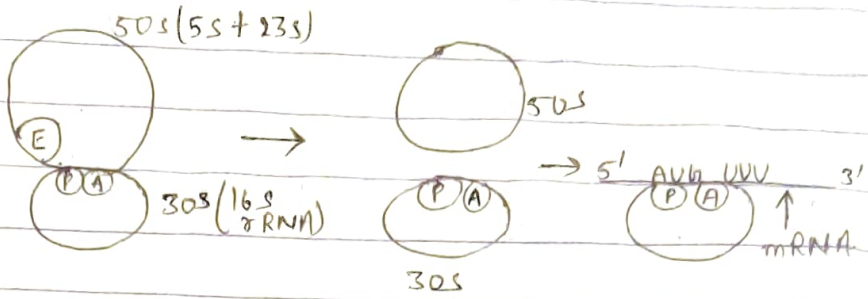 50s(5s + 23s)
E
P A
30s(16s
rRNA)
50s
P A
30s
5' AUG UUU 3'
P A
mRNA